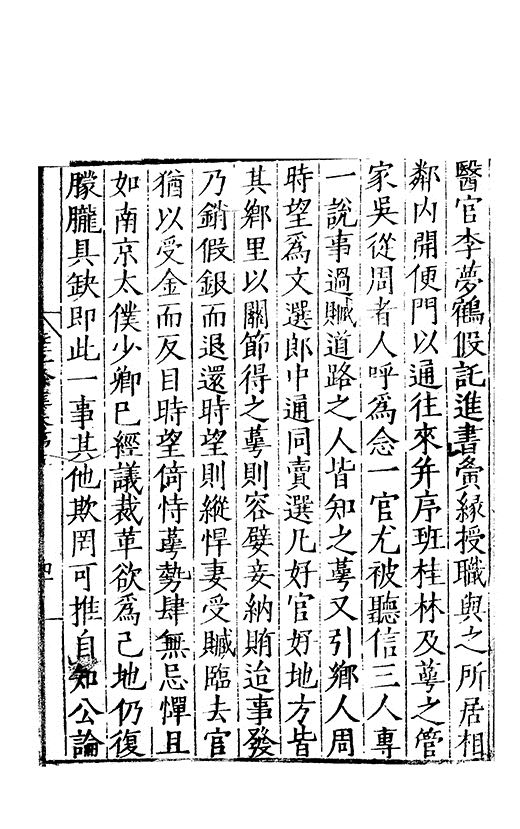 醫官李夢鶴假託進書夤緣授職與之所居相
鄰內開便門以通往來并序班桂林及蕚之管
家吳從周者人呼爲念一官尤被聽信三人專
一說事過贓道路之人皆知之蕚又引鄉人周
時望爲文選郎中通同賣選凡好官好地方皆
其鄉里以關節得之蕚則容嬖妾納賄迨事發
乃銷假銀而退還時望則縱悍妻受贓臨去官
猶以受金而反目時望倚恃蕚勢肆無忌憚且
如南京太僕少卿巳經議裁革欲爲己地仍復
朦朧具缺即此一事其他欺罔可推自知公論